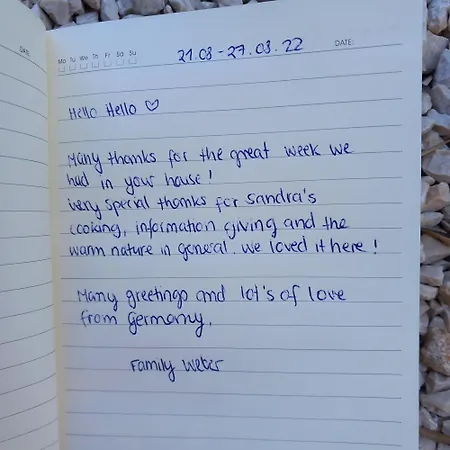 DATE:
Mo Tu We Th Fr Sa Su
21.08 - 27.08.22
DATE:
Hello Hello ♡
Many thanks for the great week we
had in your house!
Very special thanks for Sandra's
cooking, information giving and the
warm nature in general. We loved it here!
Many greetings and lot's of love
from Germany,
Family Weber